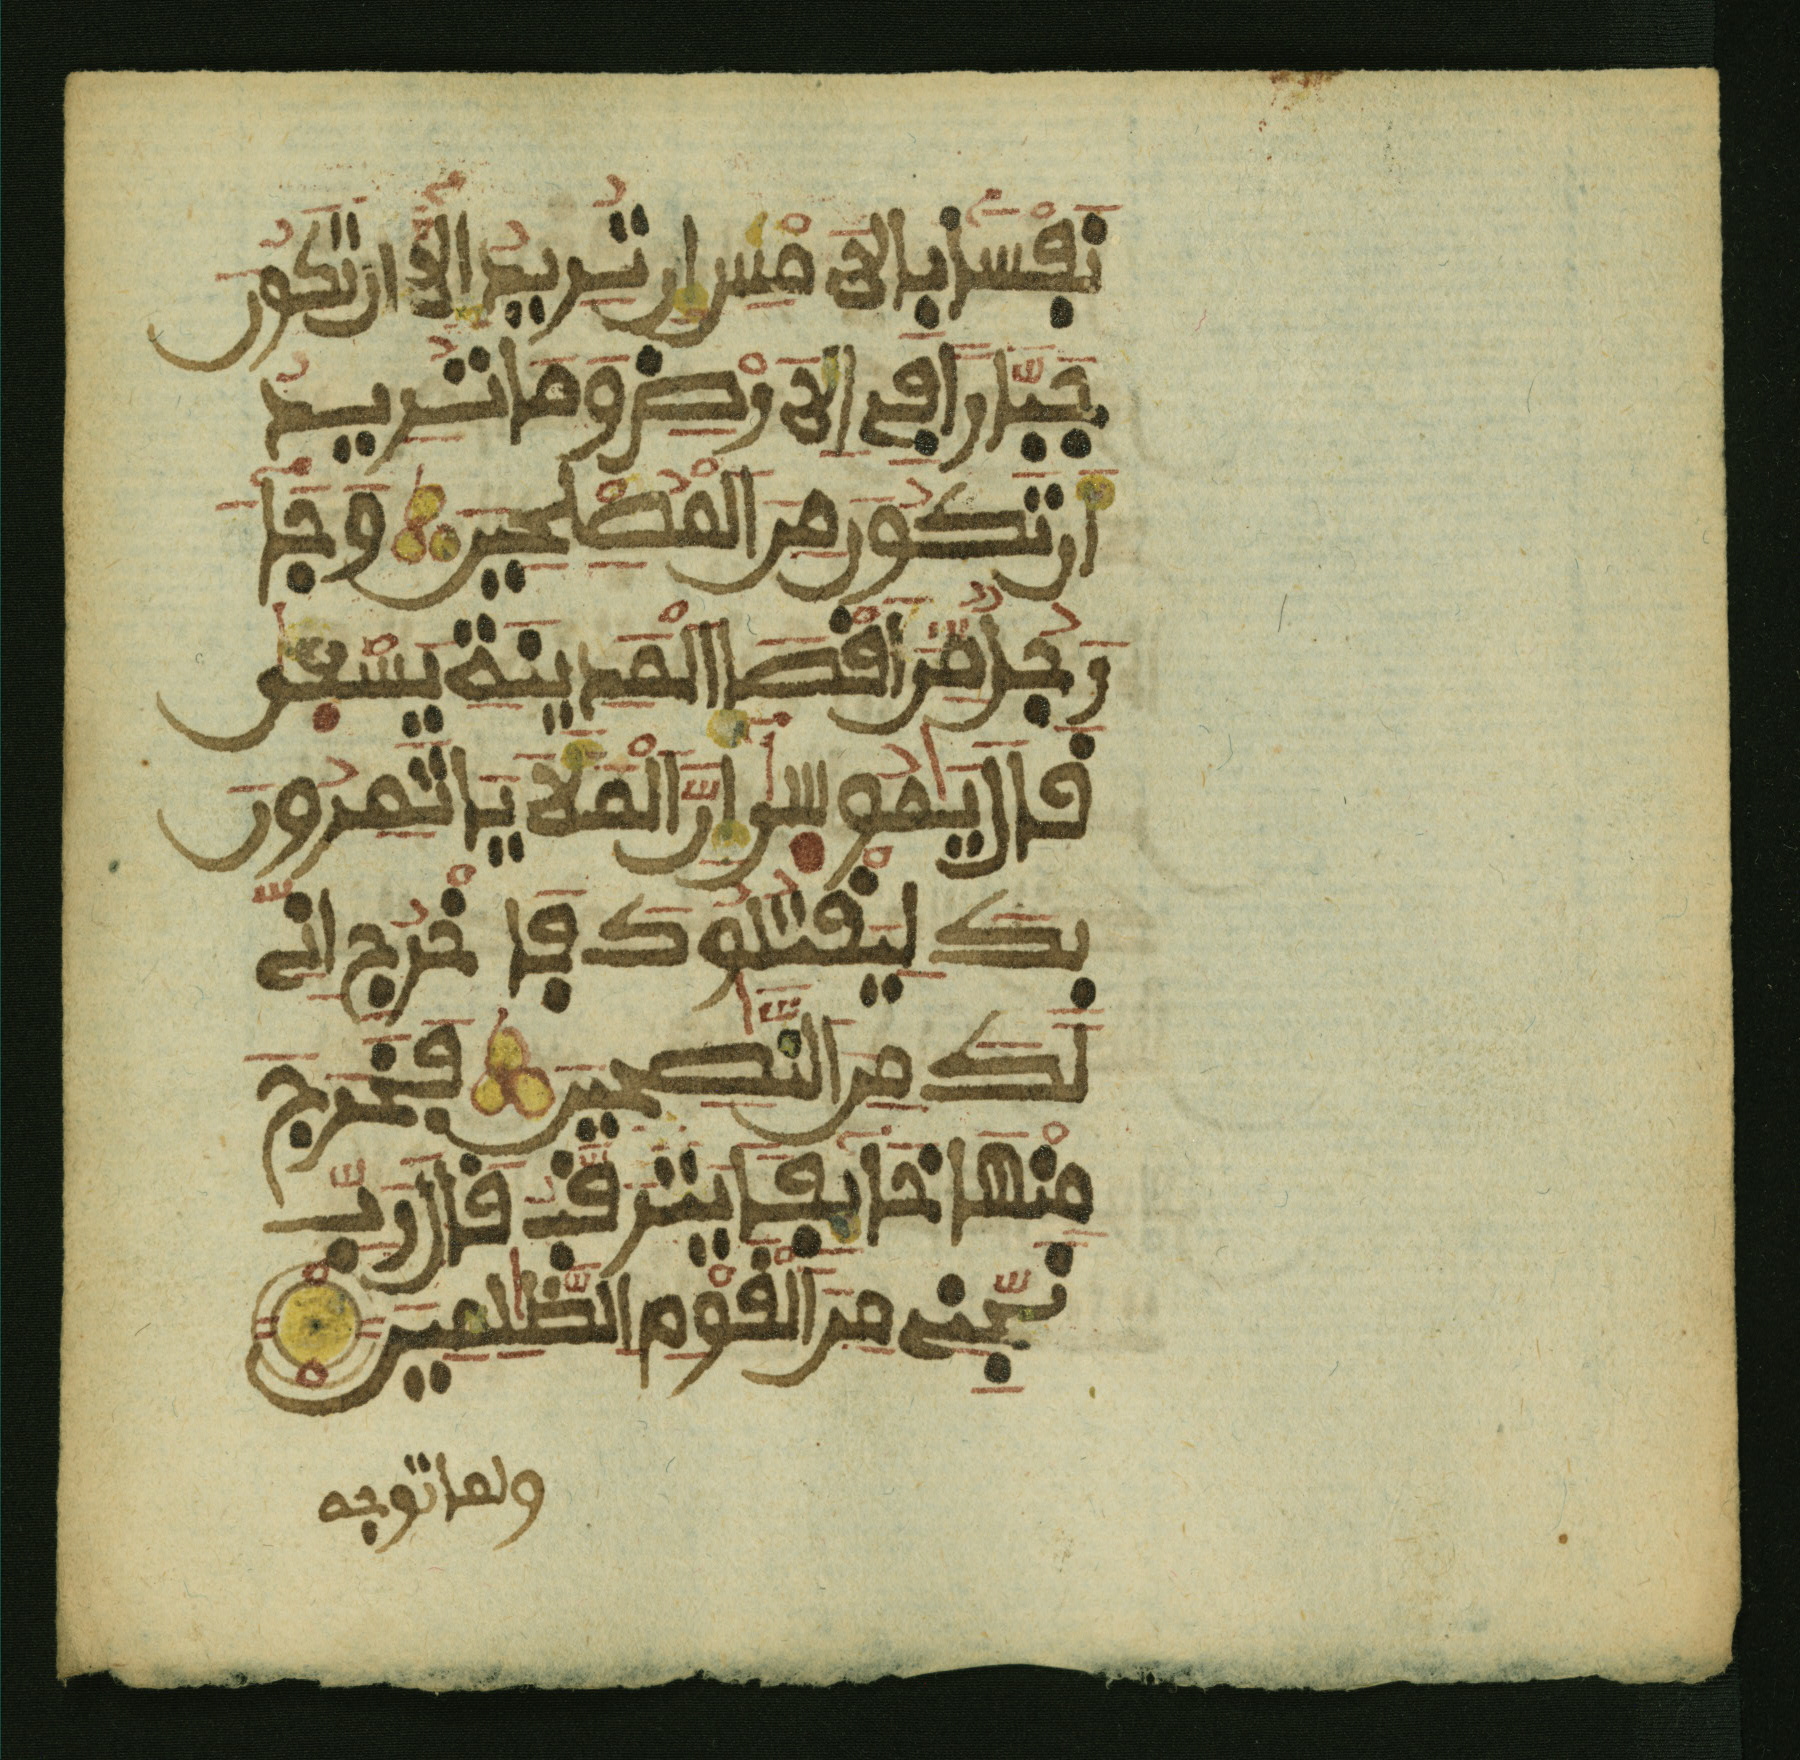 نَفْسًا بِالَامْسِ إِن تُرِيدُ إِلَّا أَن تَكُونَ
جَبَّارًا فِي الَارْضِ وَمَا تُرِيدُ
أَن تَكُونَ مِنَ الْمُصْلِحِينَ وَجَآءَ
رَجُلٌ مِّنَ اَقْصَا الْمَدِينَةِ يَسْعَىٰ
قَالَ يَٰمُوسَىٰ إِنَّ الْمَلَأَ يَاتَمِرُونَ
بِكَ لِيَقْتُلُوكَ فَاخْرُجِ اِنِّي
لَكَ مِنَ النَّٰصِحِينَ فَخَرَجَ
مِنْهَا خَآئِفًا يَتَرَقَّبُ قَالَ رَبِّ
نَجِّنِي مِنَ الْقَوْمِ الظَّٰلِمِينَ
ولما توجه